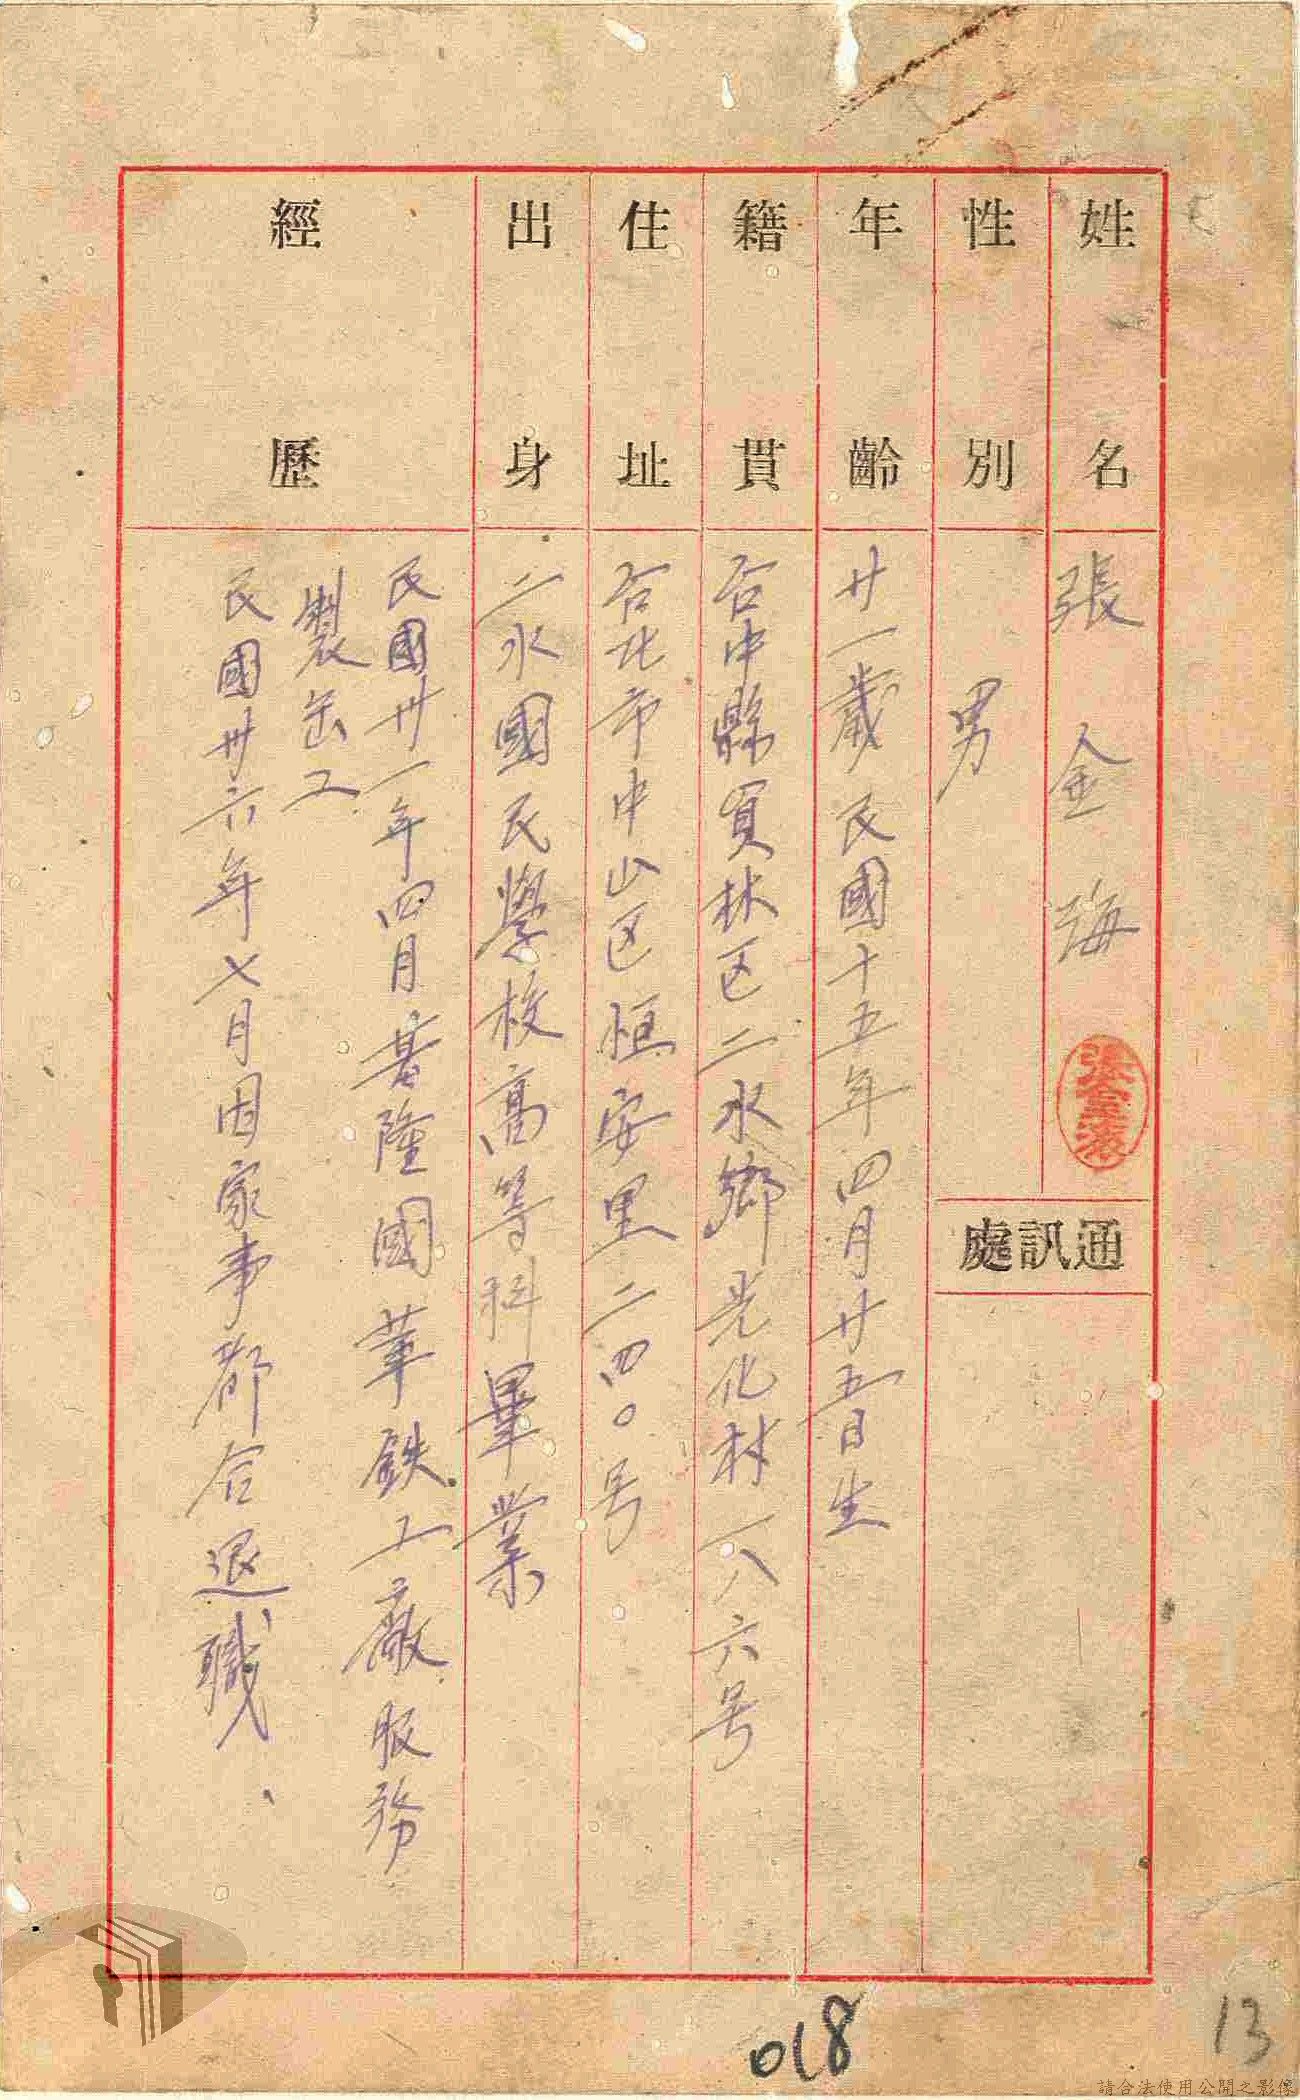 姓名
張金海
張金海
性別
男
通訊處
年齡
廿一歲民國十五年四月廿五日生
籍貫
台中縣員林区二水鄉光化村一八六号
住址
台北市中山区恒安里二四〇号
出身
二水國民學校高等科畢業
經歷
民國卅一年四月基隆國華鉄工廠服務
製缶工
民國卅六年七月因家事都合退職、
018
13
請合法使用公開之影像